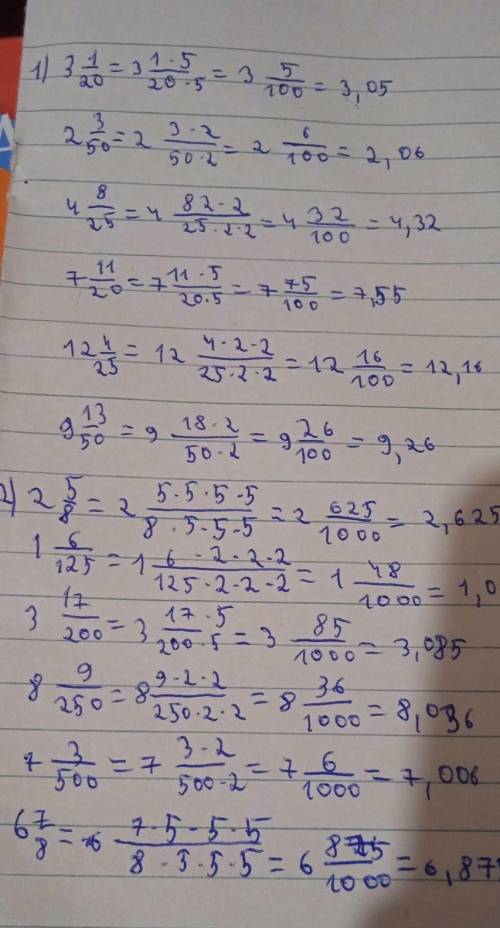 1) 3 1/20 = 3 1·5/20·5 = 3 5/100 = 3,05
2 3/50 = 2 3·2/50·2 = 2 6/100 = 2,06
4 8/25 = 4 82·2/25·2·2 = 4 32/100 = 4,32
7 11/20 = 7 11·5/20·5 = 7 75/100 = 7,55
12 4/25 = 12 4·2·2/25·2·2 = 12 16/100 = 12,16
9 13/50 = 9 18·2/50·2 = 9 26/100 = 9,26
2) 2 5/8 = 2 5·5·5·5/8·5·5·5 = 2 625/1000 = 2,625
1 6/125 = 1 6·2·2·2/125·2·2·2 = 1 48/1000 = 1,0
3 17/200 = 3 17·5/200·5 = 3 85/1000 = 3,085
8 9/250 = 8 9·2·2/250·2·2 = 8 36/1000 = 8,036
7 3/500 = 7 3·2/500·2 = 7 6/1000 = 7,006
6 7/8 = 6 7·5·5·5/8·5·5·5 = 6 875/1000 = 6,875